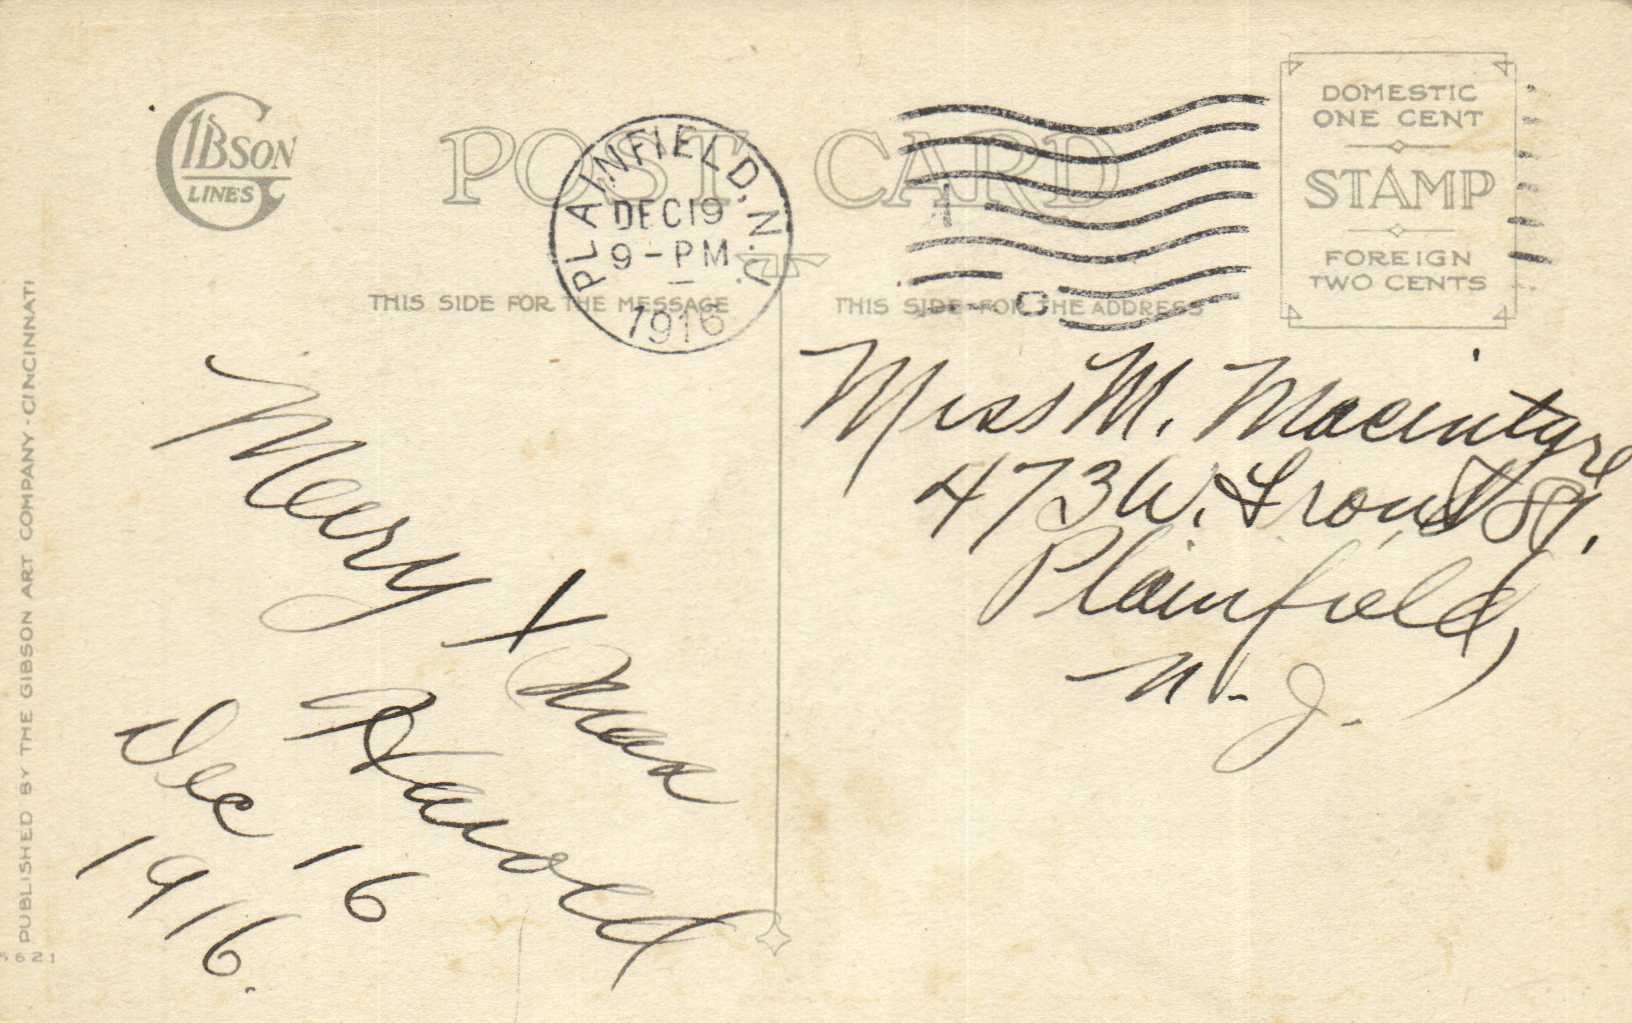 GIBSON
LINES
POST CARD
PLAINFIELD, N.J.
DEC 19
9-PM
1916
THIS SIDE FOR THE MESSAGE
THIS SIDE FOR THE ADDRESS
DOMESTIC
ONE CENT
STAMP
FOREIGN
TWO CENTS
PUBLISHED BY THE GIBSON ART COMPANY - CINCINNATI
Merry Xmas
Harold
Dec 16
1916.
Miss M. Macintyre
473 W. Front
Plainfield,
N. J.